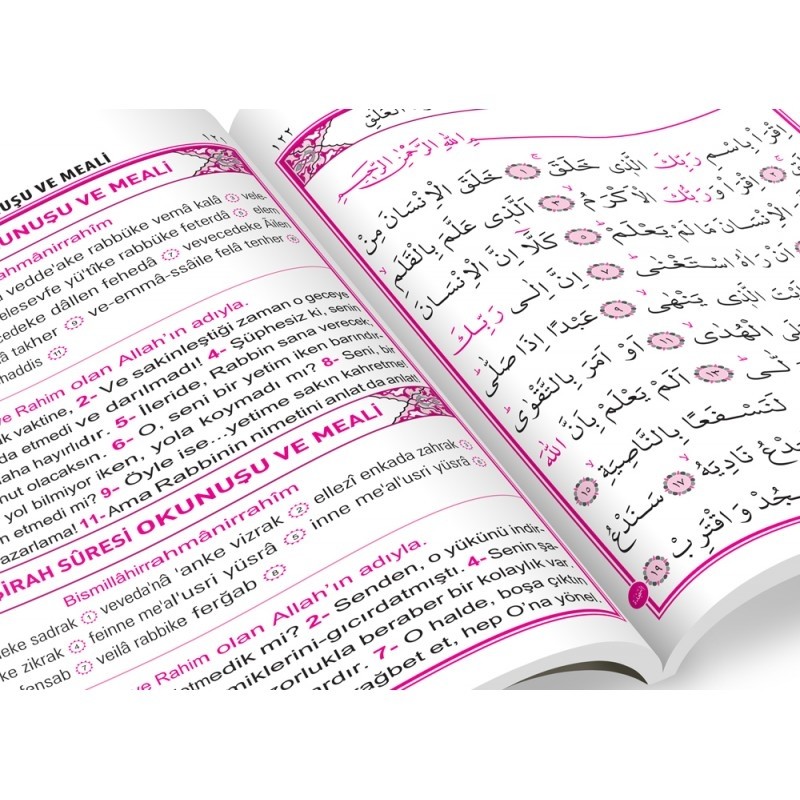 ١٢١
UŞU VE MEALİ
UNUŞU VE MEALİ
vedde'ake rabbüke vemâ kalâ ③ vele-
elesevfe yü'tîke rabbüke feterdâ ⑤ elem
dâllen fehedâ ⑦ vevecedeke Âilen
takher ⑨ ve-emmâ-ssâile felâ tenher ⑩
haddis ⑪
ve Rahim olan Allah'ın adıyla.
k vaktine, 2- Ve sakinleştiği zaman o geceye
da etmedi ve darılmadı! 4- Şüphesiz ki, senin
aha hayırlıdır. 5- İleride, Rabbin sana verecek,
nut olacaksın. 6- O, seni bir yetim iken barındır-
yol bilmiyor iken, yola koymadı mı? 8- Seni, bir
n etmedi mi? 9- Öyle ise...yetime sakın kahretme!
azarlama! 11- Ama Rabbinin nimetini anlat da anlat!
ŞİRAH SÛRESİ OKUNUŞU VE MEALİ
Bismillâhirrahmânirrahîm
leke sadrak ① veveda'nâ 'anke vizrak ② ellezî enkada zahrak ③
ke zikrak ④ feinne me'al'usri yüsrâ ⑤ inne me'al'usri yüsrâ ⑥
fensab ⑦ veilâ rabbike ferğab ⑧
ve Rahim olan Allah'ın adıyla.
etmedik mi? 2- Senden, o yükünü indir-
miklerini-gıcırdatmıştı. 4- Senin şa-
zorlukla beraber bir kolaylık var.
ardır. 7- O halde, boşa çıktın
rağbet et, hep O'na yönel.
١٢٢
العلق
اللّٰهِ الرَّحْمٰنِ الرَّحِيمِ
اِقْرَأْ بِاسْمِ رَبِّكَ الَّذِى خَلَقَ ﴿١﴾ خَلَقَ الْاِنْسَانَ مِنْ
﴿٢﴾ اِقْرَأْ وَرَبُّكَ الْاَكْرَمُ ﴿٣﴾ اَلَّذِى عَلَّمَ بِالْقَلَمِ
الْاِنْسَانَ مَا لَمْ يَعْلَمْ ﴿٥﴾ كَلَّا اِنَّ الْاِنْسَانَ
اَنْ رَاٰهُ اسْتَغْنٰى ﴿٧﴾ اِنَّ اِلٰى رَبِّكَ
الَّذِى يَنْهٰى ﴿٩﴾ عَبْدًا اِذَا صَلّٰى
عَلَى الْهُدٰى ﴿١١﴾ اَوْ اَمَرَ بِالتَّقْوٰى
﴿١٣﴾ اَلَمْ يَعْلَمْ بِاَنَّ اللّٰهَ
لَنَسْفَعًا بِالنَّاصِيَةِ ﴿١٥﴾
نَادِيَهُ ﴿١٧﴾ سَنَدْعُ
وَاقْتَرِبْ ﴿١٩﴾